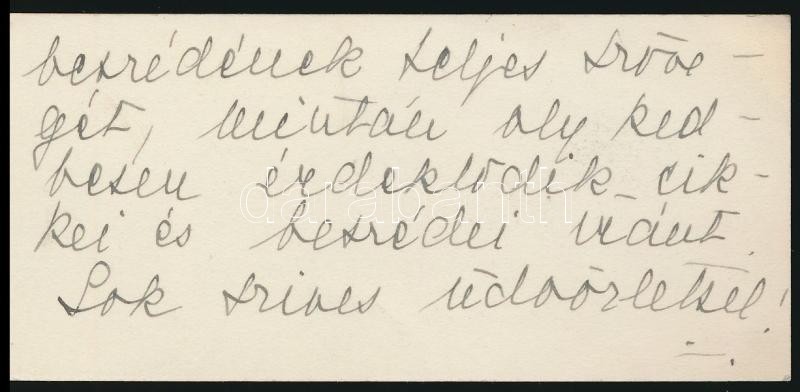 beszédének teljes szöve-
gét, miután oly ked-
vesen érdeklődik cik-
kei és beszédei iránt.
Sok szives üdvözlettel!
darabanth